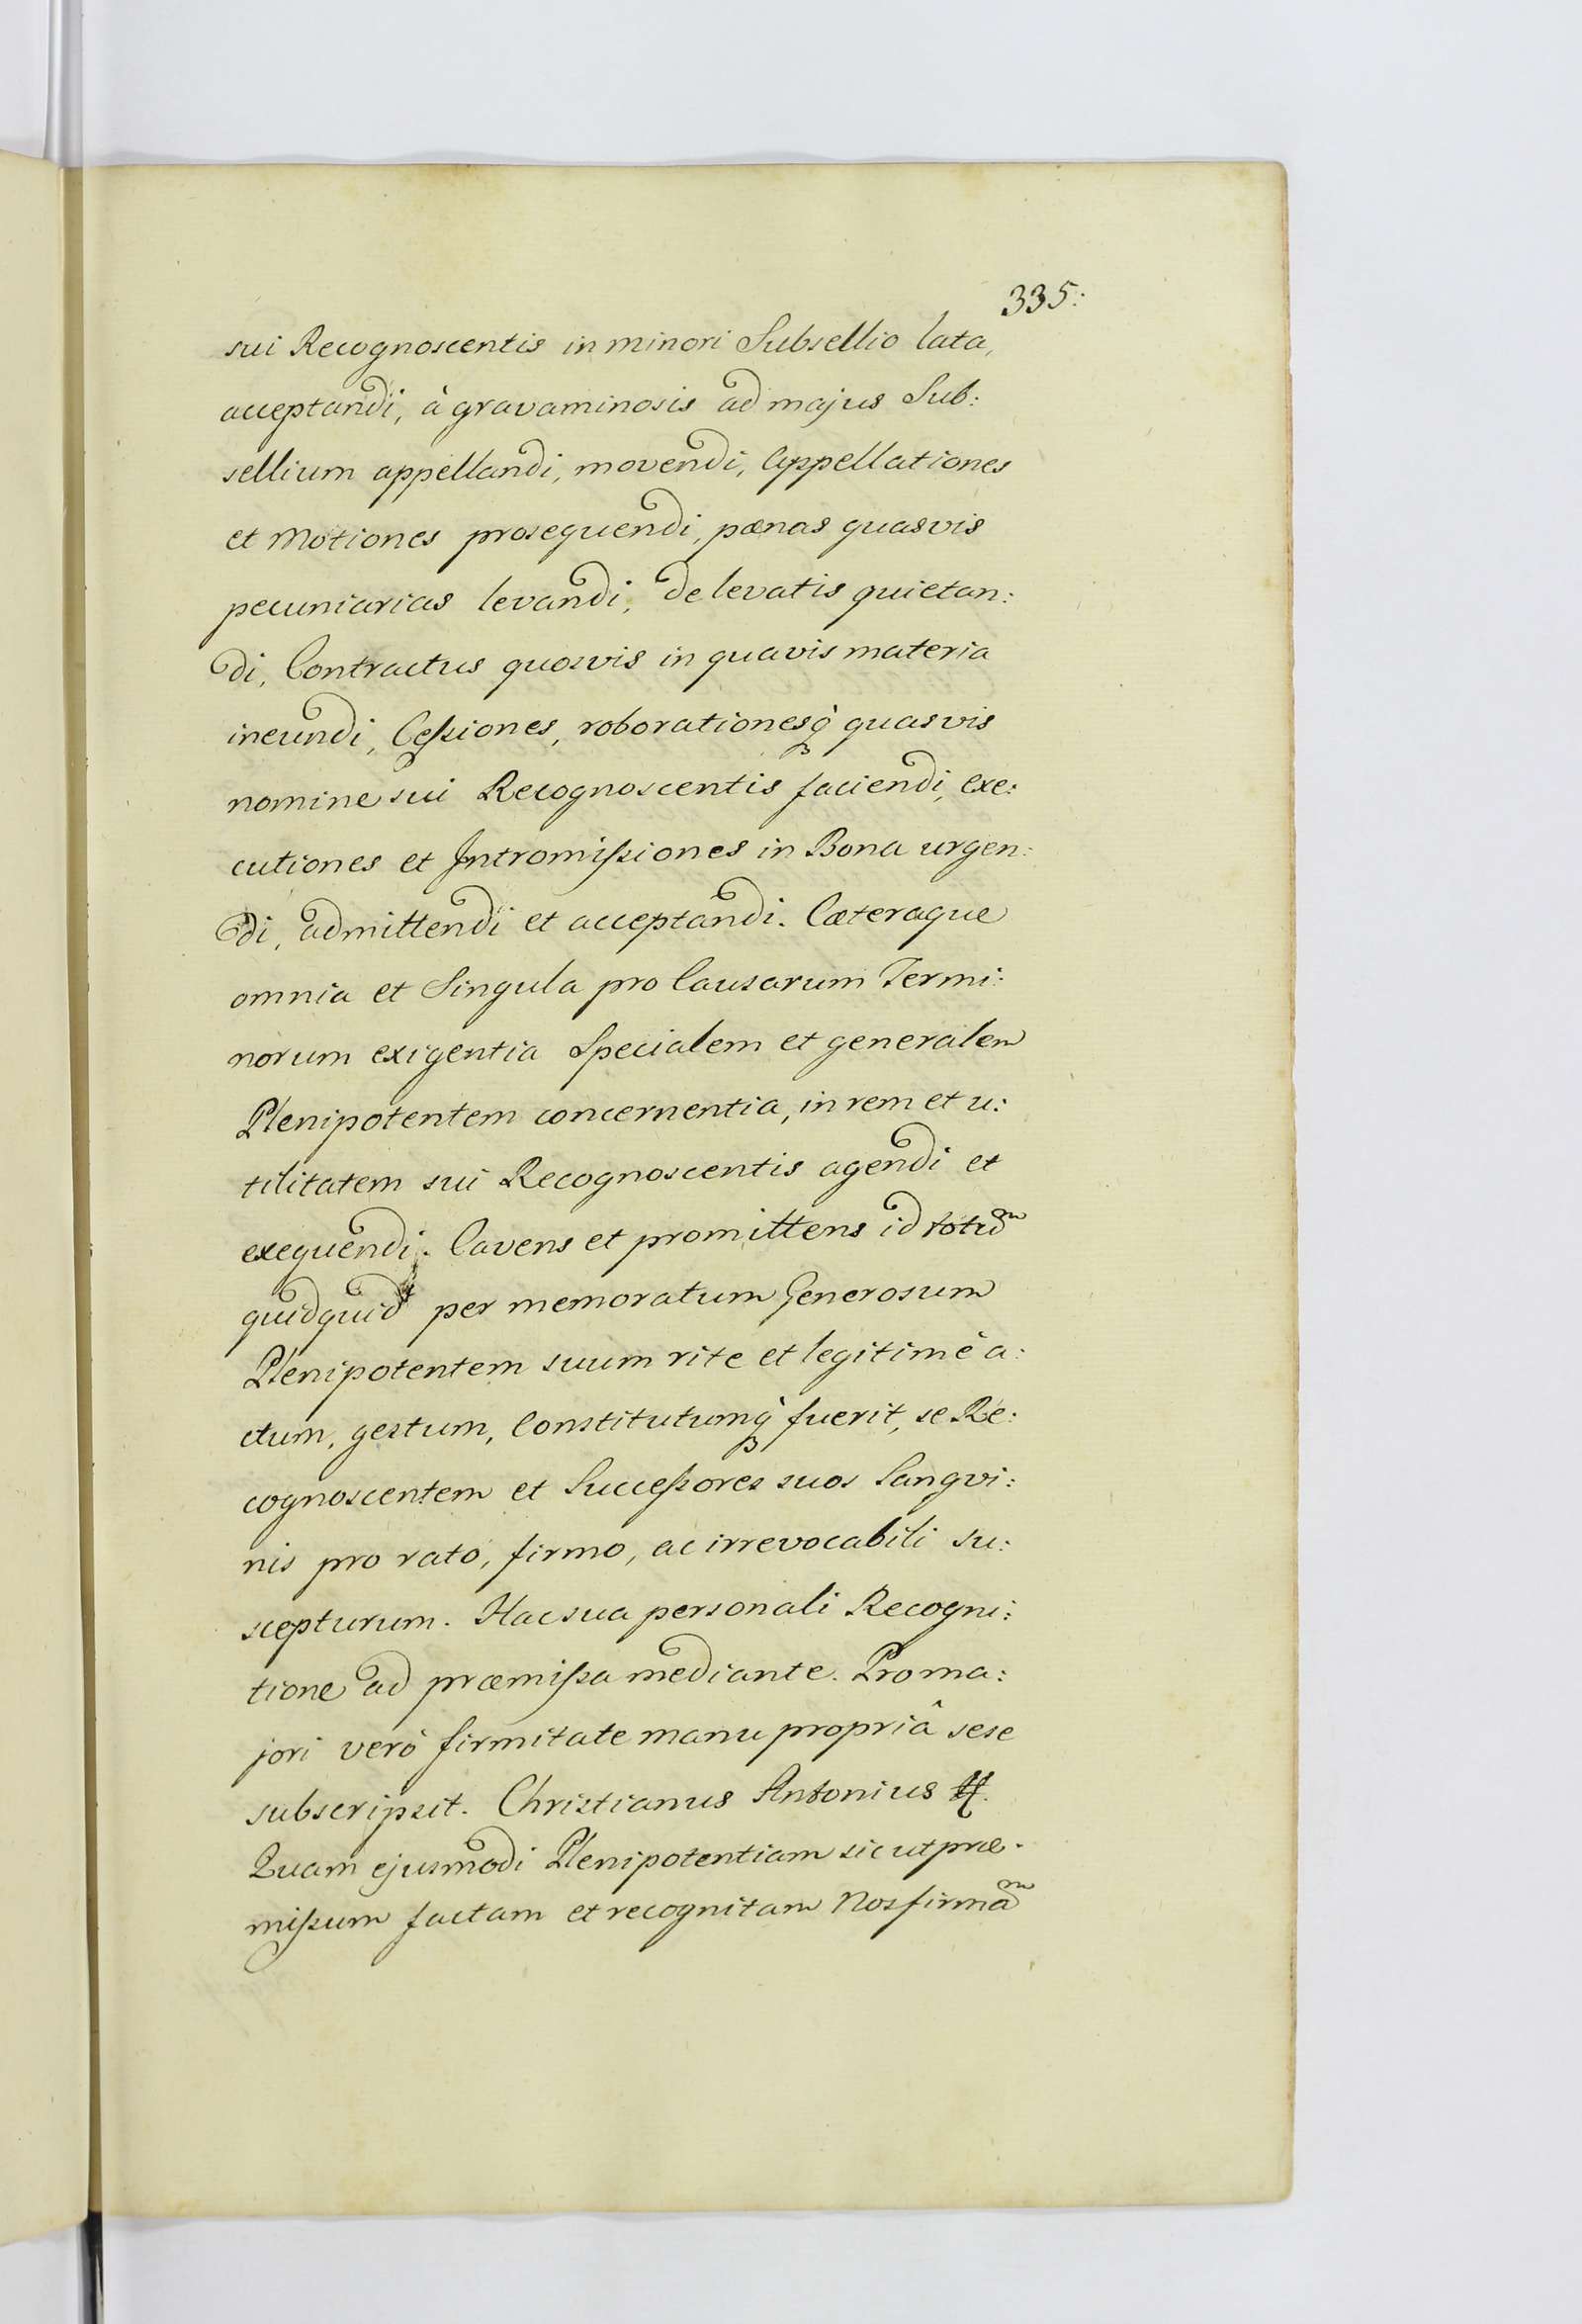 335:
sui Recognoscentis in minori Subsellio lata,
acceptandi, à gravaminosis ad majus Sub:
sellium appellandi, movendi, Appellationes
et Motiones prosequendi, pœnas quasvis
pecuniarias levandi, de levatis quietan:
di, Contractus quosvis in quavis materia
ineundi, Cessiones, roborationesq̀ quasvis
nomine sui Recognoscentis faciendi, Exe:
cutiones et Intromissiones in Bona urgen:
di, admittendi et acceptandi. Cæteraque
omnia et Singula pro Causarum Termi:
norum exigentia Specialem et generalem
Plenipotentem concernentia, in rem et u:
tilitatem sui Recognoscentis agendi et
exequendi. Cavens et promittens id totum
quidquid per memoratum Generosum
Plenipotentem suum rite et legitimè a:
ctum, gestum, Constitutumq̀ fuerit, se Re:
cognoscentem et Successores suos Sangvi:
nis pro rato, firmo, ac irrevocabili su:
scepturum. Hac sua personali Recogni:
tione ad præmissa mediante. Pro ma:
jori verò firmitate manu propriâ sese
subscripsit. Christianus Antonius H.
Quam ejusmodi Plenipotentiam sic ut præ:
missum factam et recognitam Nos firmam